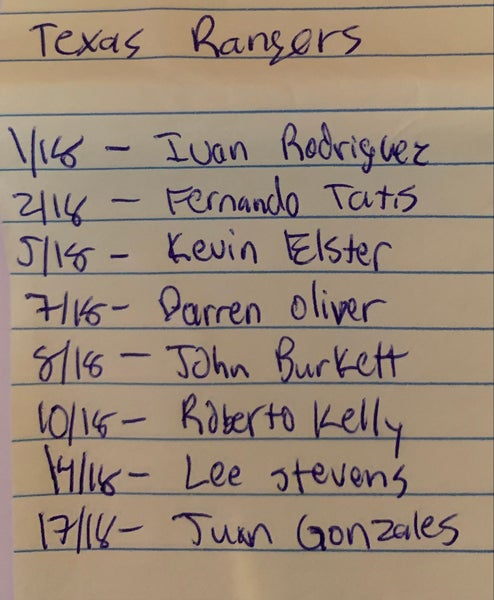 Texas Rangers
1/18 - Ivan Rodriguez
2/18 - Fernando Tatis
5/18 - Kevin Elster
7/18 - Darren Oliver
8/18 - John Burkett
10/18 - Roberto Kelly
14/18 - Lee Stevens
17/18 - Juan Gonzales